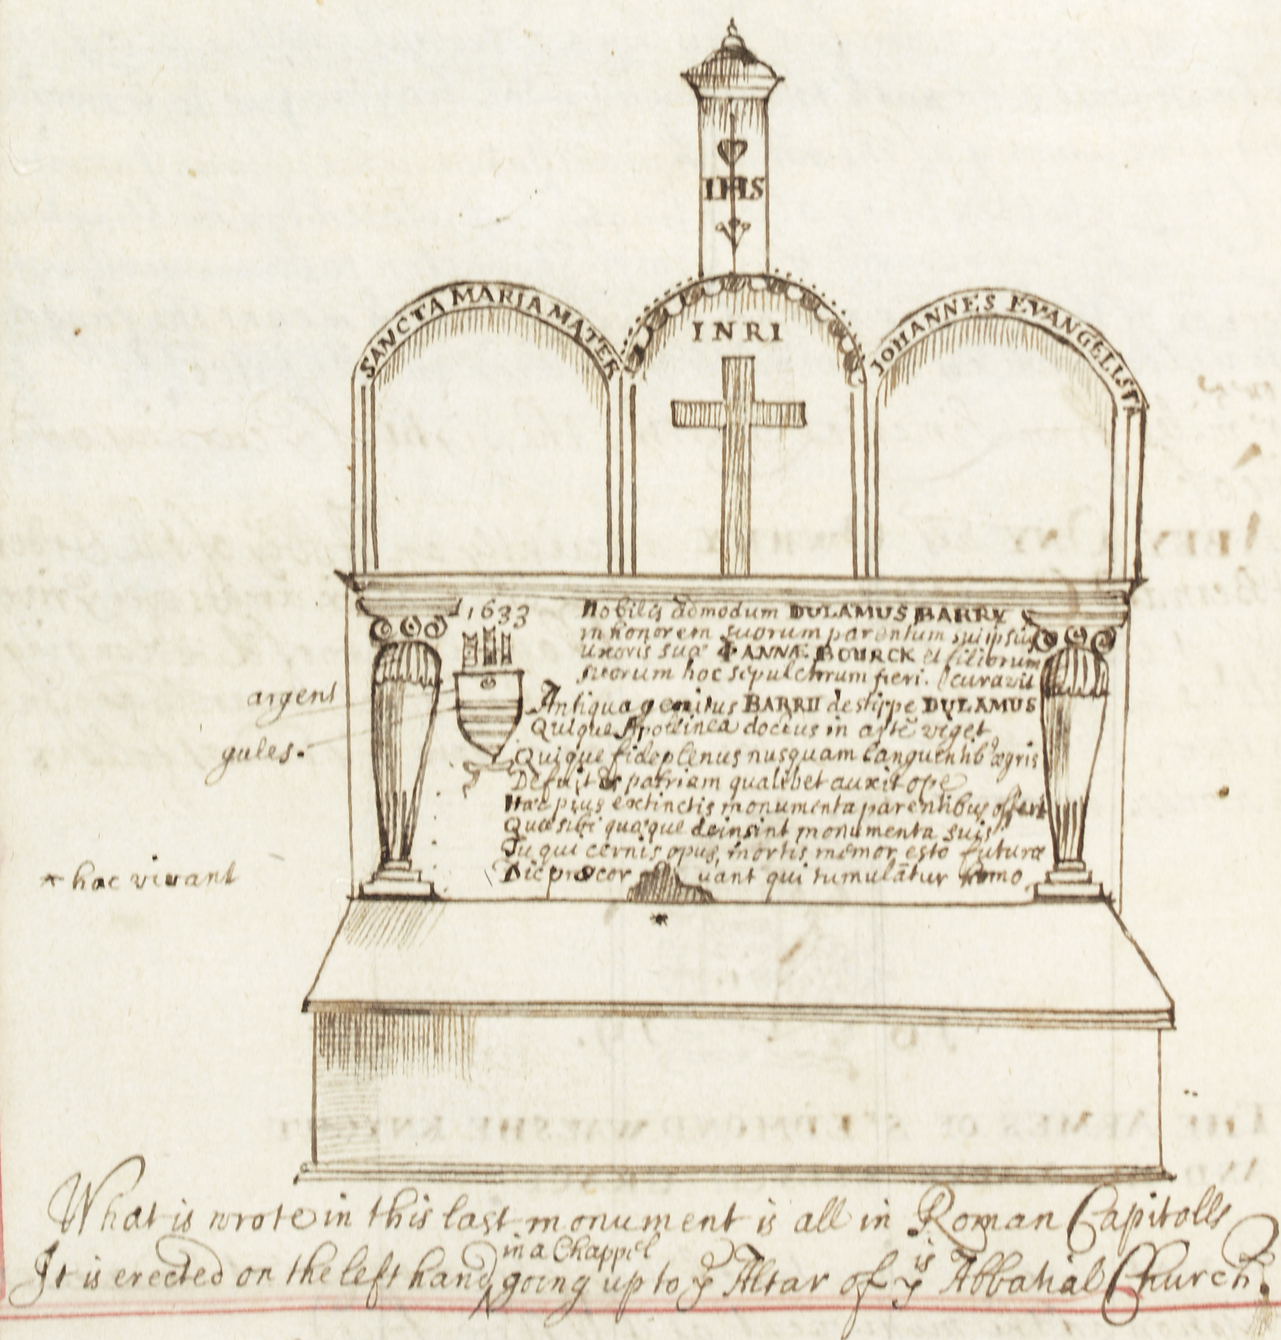 IHS
SANCTA MARIA MATER
INRI
JOHANNES EVANGELISTA
1633
Nobilis admodum DULAMUS BARRY
in honorem suorum parentum sui ipsius
uxoris suæ ANNÆ BOURCK et filiorum
suorum hoc sepulchrum fieri curavit
Antiqua genitus BARRII de stippe DULAMUS
Quique Apollinea doctus in arte viget
Quique fide plenus nusquam languentib ægris
Defuit & patriam qualibet auxit ope
Hæc pius extinctis monumenta parentibus offert
Quæ sibi quæque deinsint monumenta suis
Tu qui cernis opus, mortis memor esto futuræ
Dic præcor vant qui tumulātur homo
argent
gules.
* hac vivant
*
What is wrote in this last monument is all in Roman Capitolls
It is erected on the left hand in a Chappel going up to ye Altar of ye is Abbatial Church.